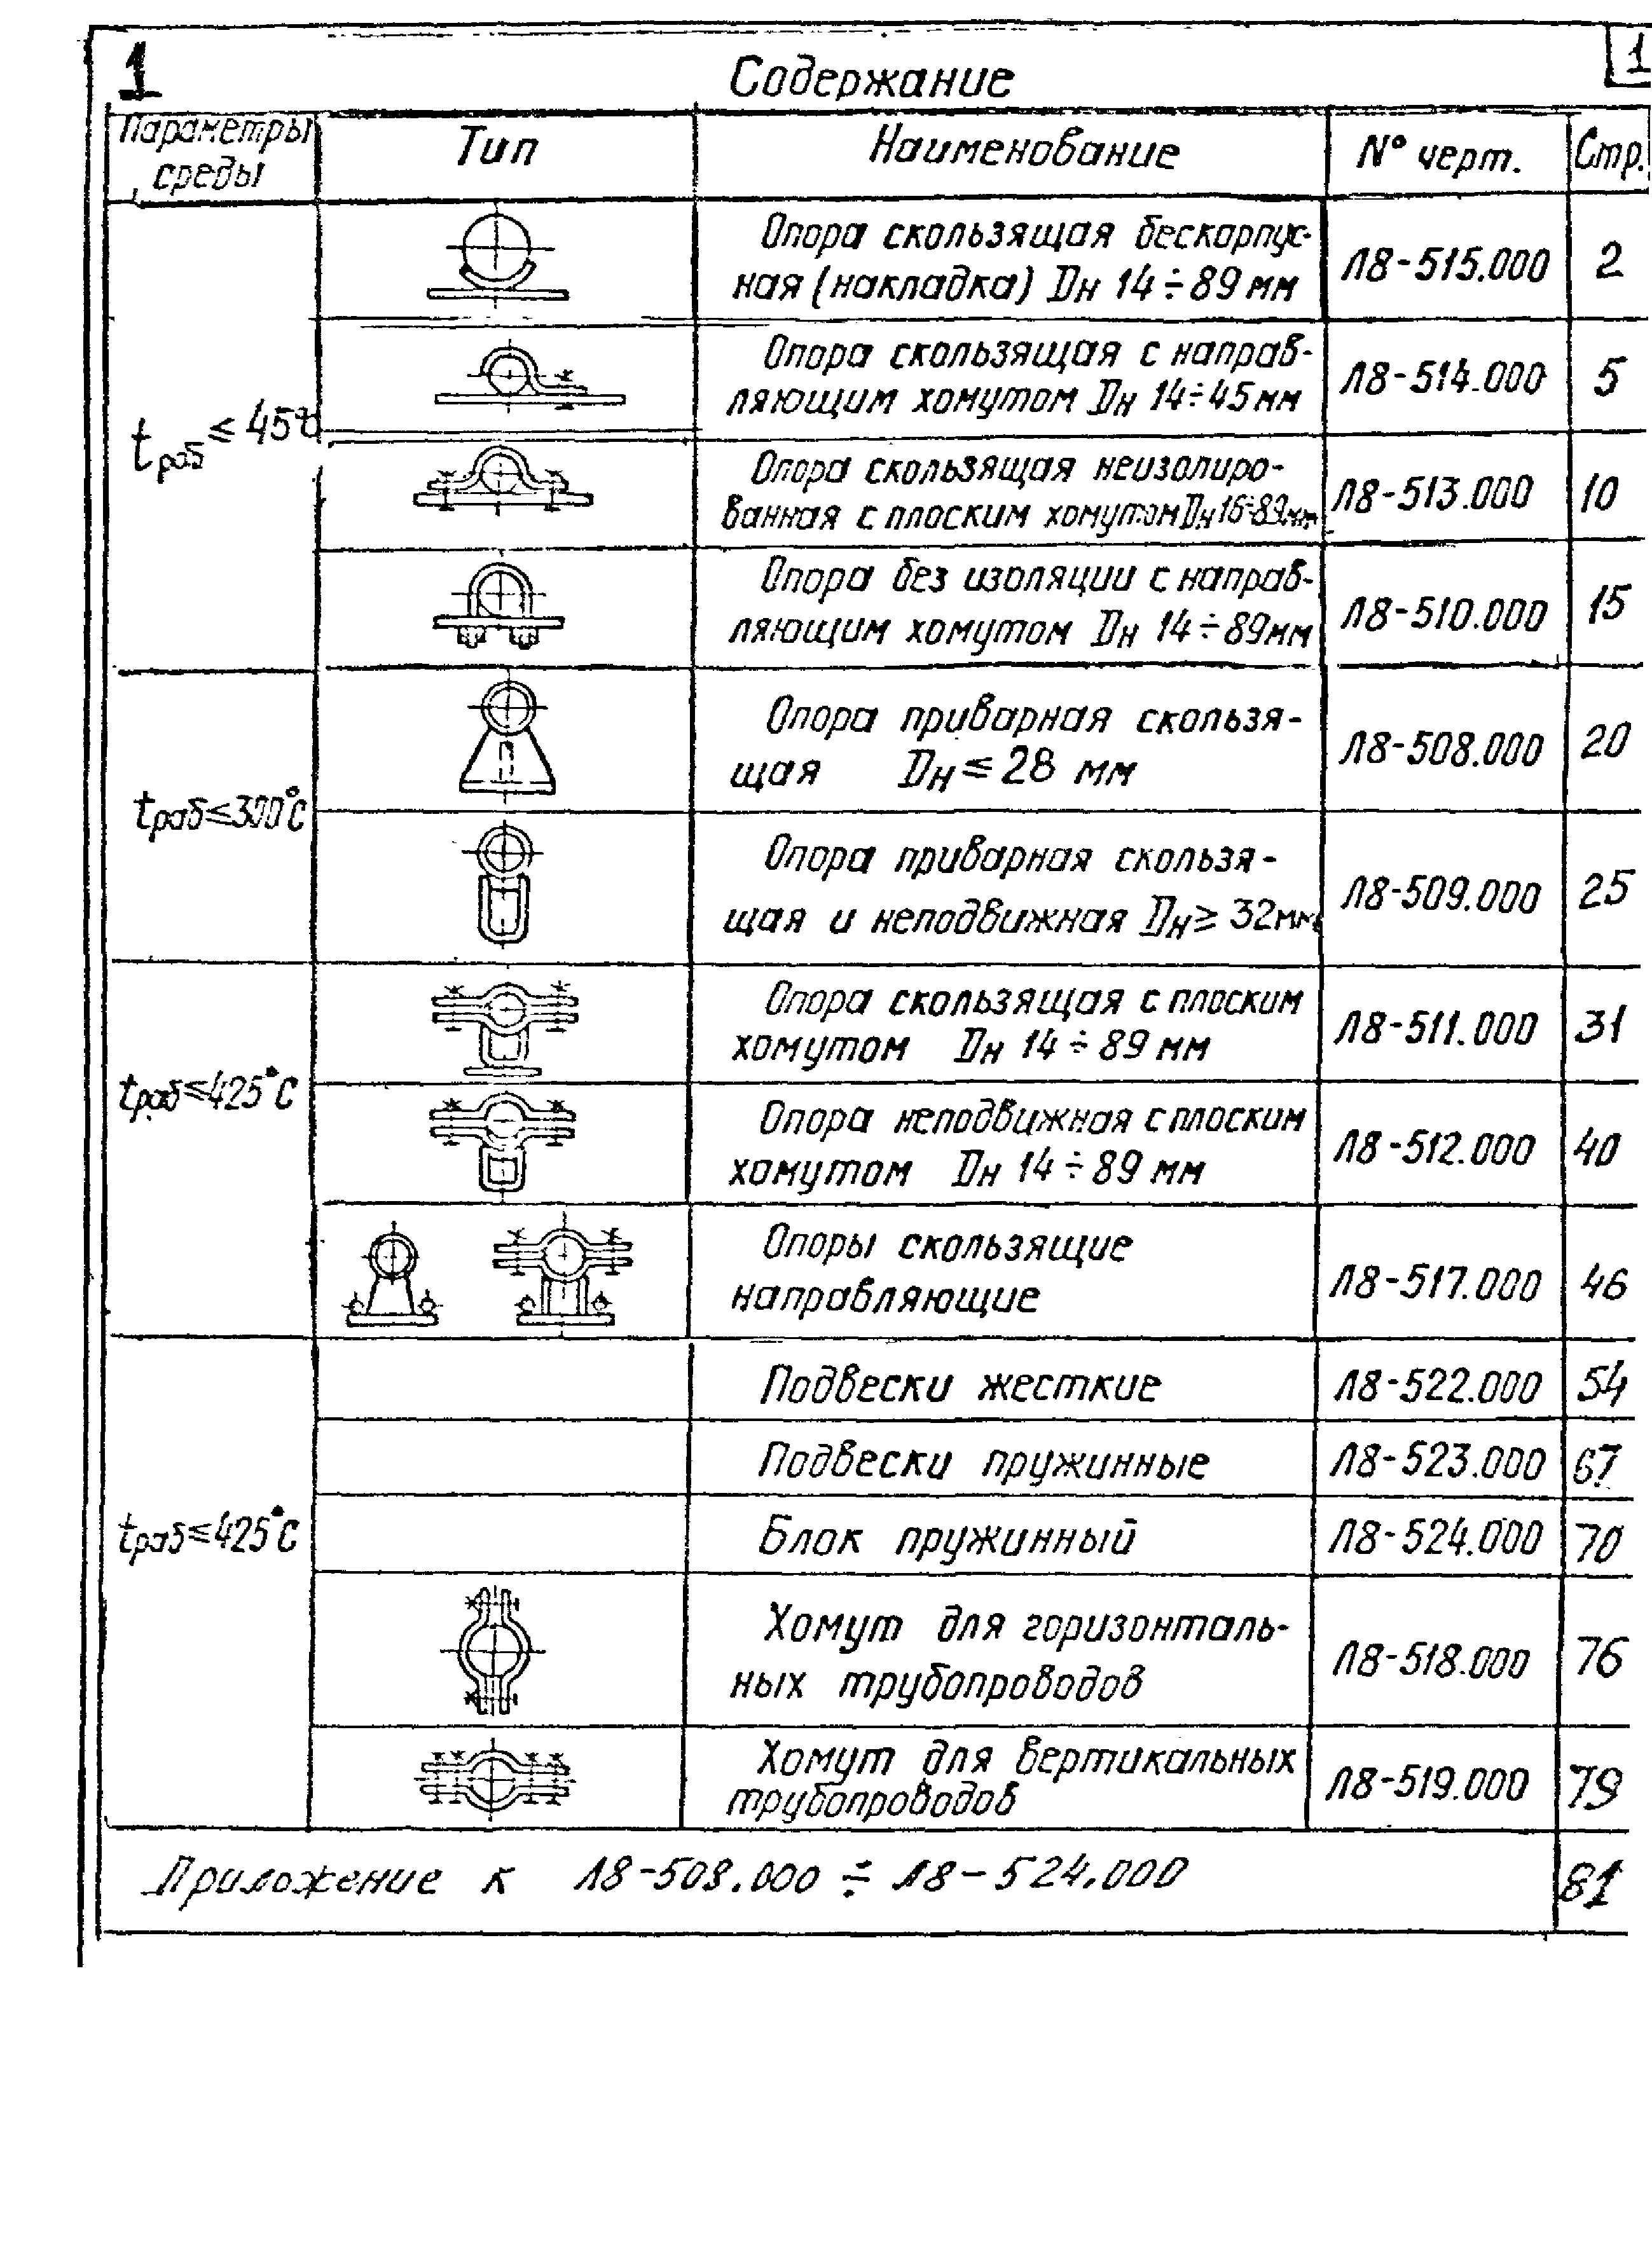 1
1
Содержание
Параметры
среды
Тип
Наименование
N° черт.
Стр.
Опора скользящая бескорпус-
ная (накладка) Dн 14÷89 мм
Л8-515.000
2
Опора скользящая с направ-
ляющим хомутом Dн 14÷45 мм
Л8-514.000
5
tраб ≤ 45°
Опора скользящая неизолиро-
ванная с плоским хомутом Dн 16÷89 мм
Л8-513.000
10
Опора без изоляции с направ-
ляющим хомутом Dн 14÷89 мм
Л8-510.000
15
Опора приварная скользя-
щая Dн ≤ 28 мм
Л8-508.000
20
tраб ≤ 300°С
Опора приварная скользя-
щая и неподвижная Dн ≥ 32 мм
Л8-509.000
25
Опора скользящая с плоским
хомутом Dн 14÷89 мм
Л8-511.000
31
tраб ≤ 425°С
Опора неподвижная с плоским
хомутом Dн 14÷89 мм
Л8-512.000
40
Опоры скользящие
направляющие
Л8-517.000
46
Подвески жесткие
Л8-522.000
54
Подвески пружинные
Л8-523.000
67
tраб ≤ 425°С
Блок пружинный
Л8-524.000
70
Хомут для горизонталь-
ных трубопроводов
Л8-518.000
76
Хомут для вертикальных
трубопроводов
Л8-519.000
79
Приложение к Л8-508.000 ÷ Л8-524.000
81